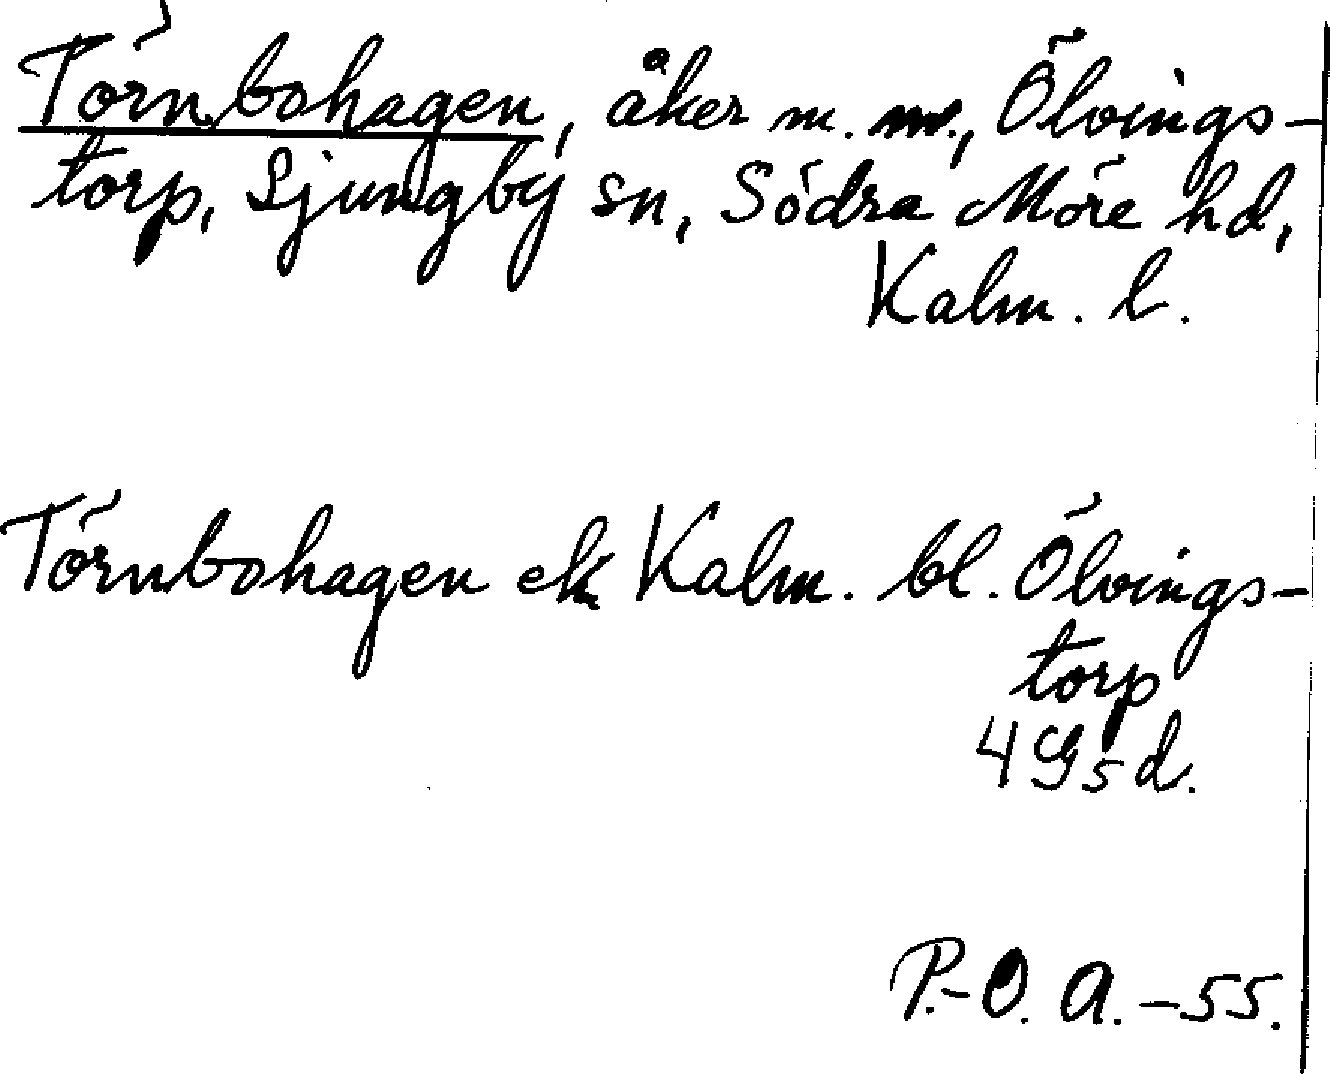 Törnbohagen, åker m. m., Ölvings-
torp, Ljungby sn, Södra Möre hd,
Kalm. l.
Törnbohagen ek Kalm. bl. Ölvings-
torp
4 G5d.
P.-O. A. -55.